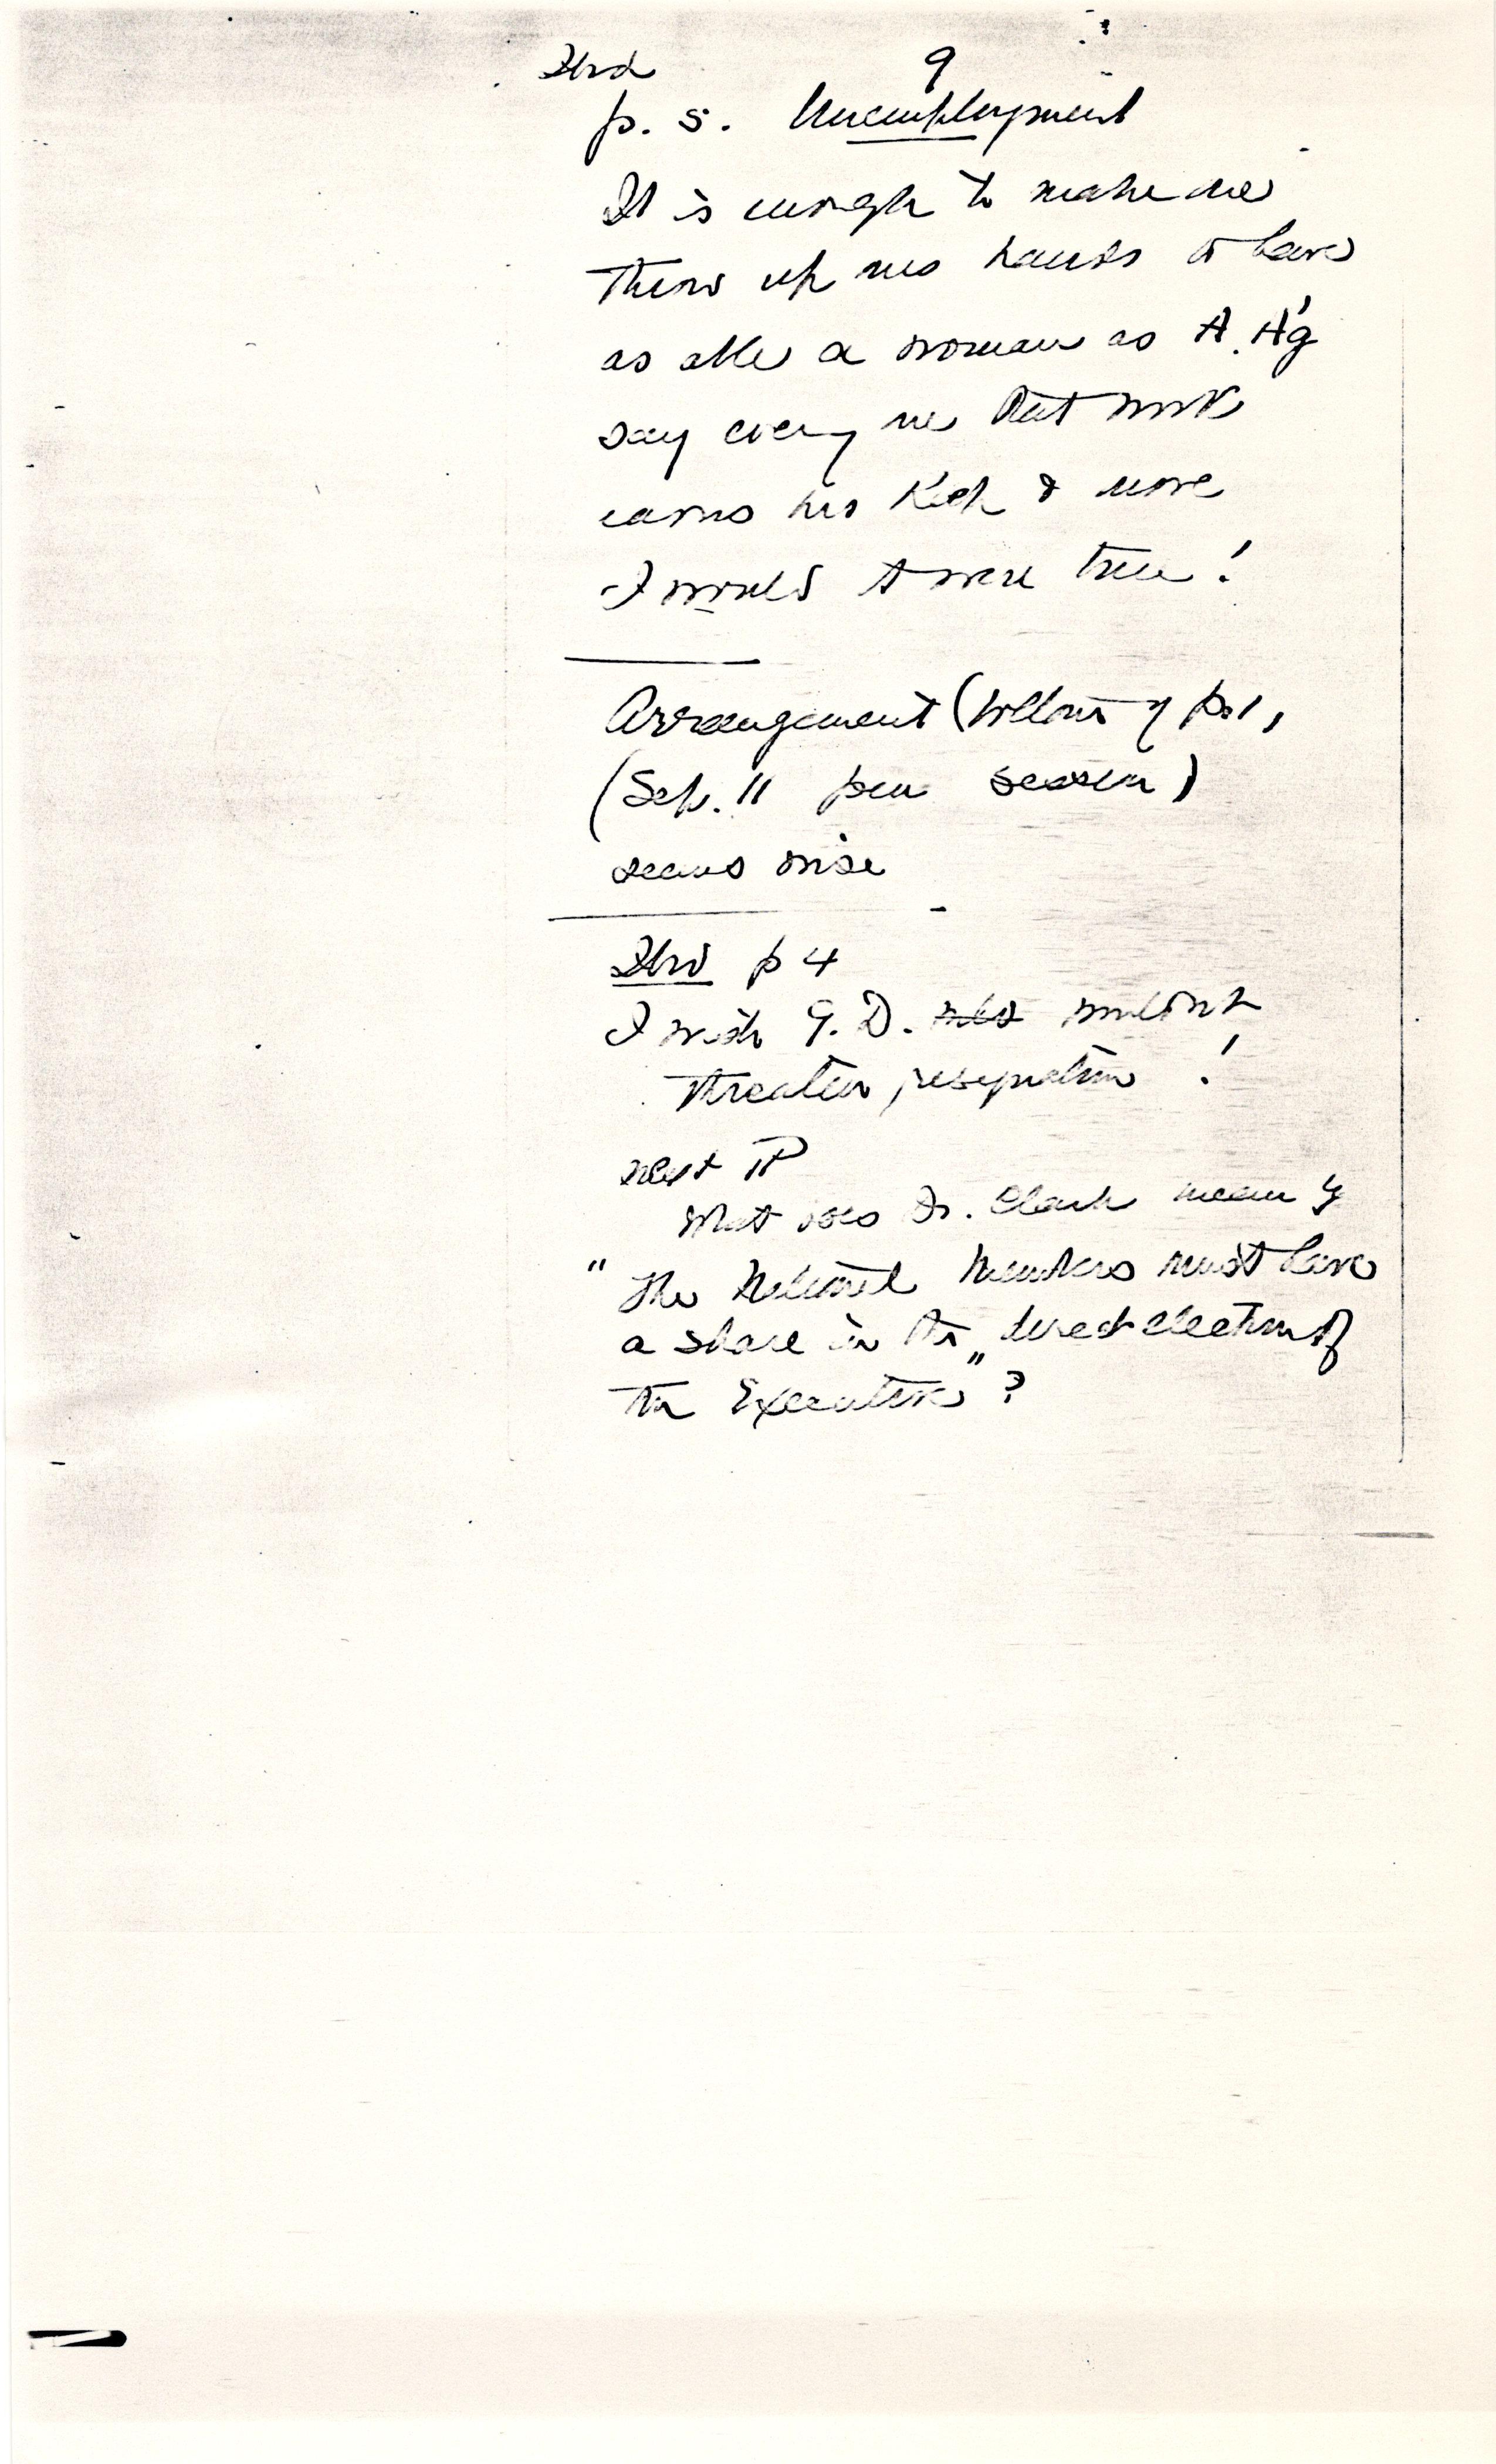 Ibid 9
p. 5. Unemployment
It is enough to make me
throw up my hands to have
as able a woman as A. H'g
say every one that works
earns his keep & more
I would it were true!
Arrangement (bottom of p. 1,
(Sep. 11 pm session)
seems wise
Ibid p 4
I wish G. D. wouldn't
threaten resignation!
next ¶
What does Dr. Clark mean by
"The National Members must have
a share in the direct election of
the Executive"?